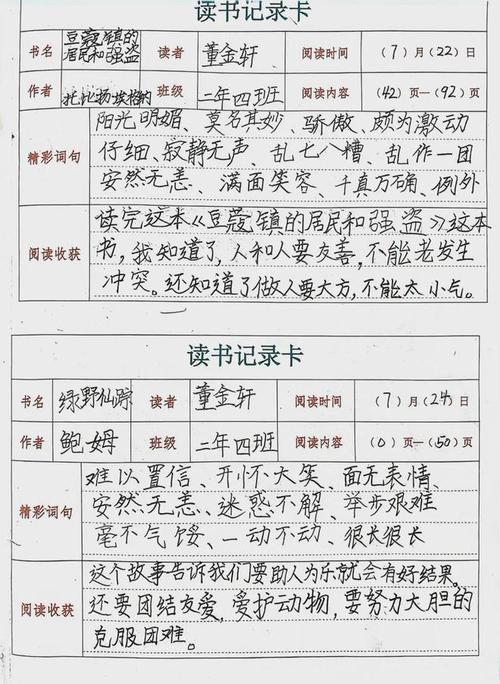 读书记录卡
书名 豆蔻镇的居民和强盗 读者 董金轩 阅读时间 (7)月(22)日
作者 托比扬·埃格纳 班级 二年四班 阅读内容 (42)页—(92)页
精彩词句
阳光明媚、莫名其妙、骄傲、颇为激动
仔细、寂静无声、乱七八糟、乱作一团
安然无恙、满面笑容、千真万确、例外
阅读收获
读完这本《豆蔻镇的居民和强盗》这本
书,我知道了,人和人要友善,不能老发生
冲突。还知道了做人要大方,不能太小气。
读书记录卡
书名 绿野仙踪 读者 董金轩 阅读时间 (7)月(24)日
作者 鲍姆 班级 二年四班 阅读内容 (0)页—(50)页
精彩词句
难以置信、开怀大笑、面无表情、
安然无恙、迷惑不解、举步艰难
毫不气馁、一动不动、很长很长
阅读收获
这个故事告诉我们要助人为乐就会有好结果。
还要团结友爱,爱护动物,要努力大胆的
克服困难。